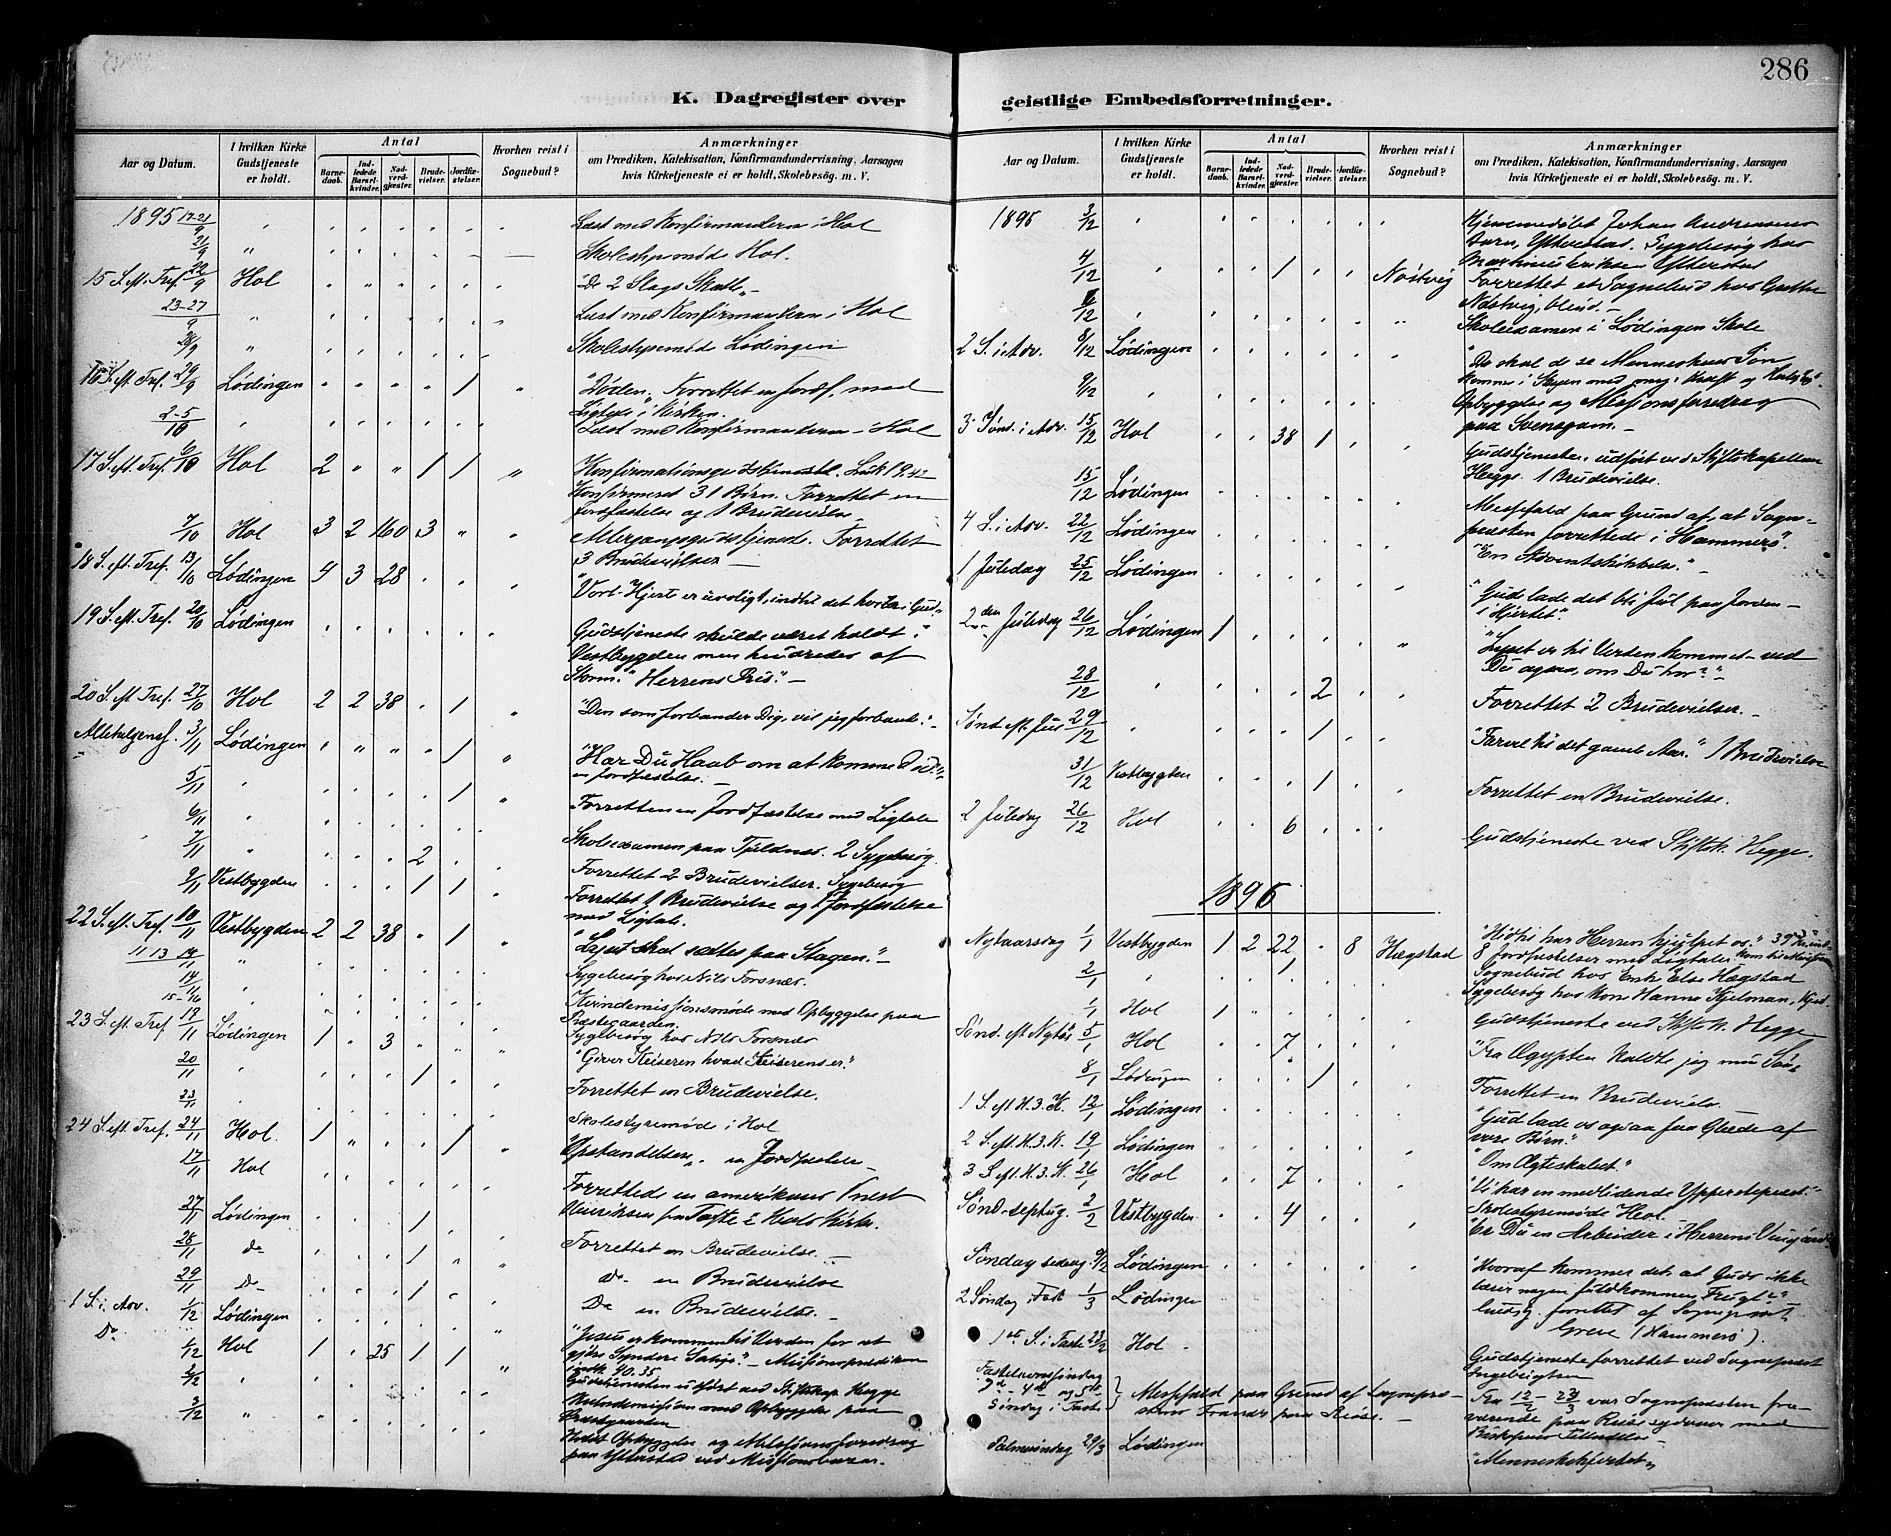 286
K. Dagregister over geistlige Embedsforretninger.
Aar og Datum.
I hvilken Kirke Gudstjeneste er holdt.
Antal
Barnedaab.
Indledede Barselkvinder.
Nadverdgjæster.
Brudevielser.
Jordfæstelser.
Hvorhen reist i Sognebud?
Anmærkninger
om Prædiken, Katekisation, Konfirmandundervisning, Aarsagen
hvis Kirketjeneste ei er holdt, Skolebesøg. m. V.
1895 17-21/9 Læst med Konfirmanderne i Hol
21/9 Skolestyremøde Hol.
15 S. eft. Tref. 22/9 Hol "De 2 Slags Skatte"
23-27/9 Læst med Konfirmanderne i Hol
28/9 Skolestyremøde Lødingen
16 S. eft. Tref. 29/9 Lødingen 1 "Døden". Forrettet en Jordf. med
Ligtale i Kirken.
2-5/10 Læst med Konfirmanderne i Hol
17 S. eft. Tref. 6/10 Hol 2 " " 1 1 " Konfirmationsgudstjeneste. Luk 19.42
Konfirmeret 31 Børn. Forrettet en
Jordfæstelse og 1 Brudevielse
7/10 Hol 3 2 160 3 Altergangsgudstjeneste. Forrettet
3 Brudevielser
18 S. eft. Tref. 13/10 Lødingen 4 3 28 "Vort Hjerte er uroligt, indtil det hviler i Gud"
19 S. eft. Tref. 20/10 Lødingen Gudstjeneste skulde været holdt i
Vestbygden men hindredes af
Storm. "Herrens Pris"
20 S. eft. Tref. 27/10 Hol 2 2 38 . 1 "Den som forbander Dig, vil jeg forbande."
Allehelgensf. 3/11 Lødingen . " " " 1 " "Har Du Haab om at komme
en Jordfæstelse.
5/11 1 Forretten en Jordfæstelse med Ligtale
6/11 Skoleexamen paa Tjeldnes. 2 Sygebesøg.
7/11 2 Forrettet 2 Brudevielser. Sygebesøg
9/11 Vestbygden 1 1 Forrettet 1 Brudevielse og 1 Jordfæstelse
med Ligtale.
22 S. eft. Tref. 10/11 Vestbygden 2 2 38 " 1 "Lyset skal sættes paa Stagen."
11 13 14/11 Sygebesøg hos Nils Forsnæs.
14/11 Kvindemissionsmøde med Opbyggelse paa
Præstegaarden.
15-16/11 Sygebesøg hos Nils Forsnæs
23 S. eft. Tref 17/11 Lødingen 1 . 3 "Giver Keiseren hvad Keiserens er."
20/11 1 Forrettet en Brudevielse.
23/11 Skolestyremøde i Hol
24 S. eft. Tref. 24/11 Hol. 1 " . . 1 "Opstandelsen". en Jordfæstelse
17/11 Hol Forrettede en amerikansk Præst
27/11 Lødingen 1 Forrettet en Brudevielse.
28/11 do 1 do en Brudevielse
29/11 Do 1 Do en Brudevielse.
1 S. i Adv. 1/12 Lødingen "Jesus er kommen til Verden for at
gjøre Syndere Salige." Missionsprædiken
Do 1/12 Hol 1 . 25 1 1 Gudstjenesten udført ved Stiftskap. Hegge
2/12 med Opbyggelse paa
Præstegaarden
3/12 Holdt Opbyggelse og Missionsforedrag
ved Missionsbazar.
1895 3/12 Johan Andreassens
Sygebesøg hos
4/12 1 Nøstvig Forrettet et Sognebud hos
Nøstvig, blind.
6/12 Skoleexamen i Lødingen Skole
2 S. i Adv. 8/12 Lødingen "Da skal de se Menneskens Søn
komme i Skyen med megen Kraft og Herlighed".
9/12 Opbyggelse og Missionsforedrag
paa
3 Sønd. i Adv. 15/12 Hol . . 38 1 Gudstjenesten udført ved Stiftskapellan
Hegge. 1 Brudevielse.
15/12 Lødingen Messefald paa Grund af, at Sogne-
præsten forrettede i Hammerø.
4 S. i Adv. 22/12 Lødingen "En
1 Juledag 25/12 Lødingen "Gud lade det bli Jul paa Jorden
i Hjertet".
2den Juledag 26/12 Lødingen 1 "Lyset er til Verden kommet - ved
Du
28/12 2 Forrettet 2 Brudevielser.
Sønd eft. Jul 29/12 1 "Farvel til det gamle Aar." 1 Brudevielse
31/12 Vestbygden 1 Forrettet en Brudevielse.
2 Juledag 26/12 Hol 6 Gudstjeneste ved Stiftsk. Hegge.
1896
Nytaarsdag 1/1 Vestbygden 1 2 22 " 8 Hægstad "Hidtil har Herren hjulpet os."
8 Jordfæstelser med Ligtale.
2/1 1 Sognebud hos Enke Else Hægstad
Sygebesøg hos Kone Hanna Kjelman,
1/1 Hol 1 Gudstjeneste ved Stiftsk. Hegge
Sønd. eft Nytår 5/1 Hol 7 "Fra Ægypten kaldte jeg min Søn"
8/1 Lødingen 1 Forrettet en Brudevielse
1 S. eft H. 3. K. 12/1 Lødingen "Gud lade os ogsaa faa Glæde af
vore Børn."
2 S. eft. H. 3. K. 19/1 Lødingen "Om Ægteskabet."
3 S eft H. 3. K. 26/1 Hol 7 "Vi har en medlidende Ypperstepræst."
Skolestyremøde Hol.
Sønd. septug. 2/2 Vestbygden 4 "Er Du en Arbeider i Herrens Vingård"
Søndag sexag. 9/2 Lødingen "Hvoraf kommer det, at Guds
bærer nogen fuldkommen Frugt"
2 Søndag i Fast 1/3 Lødingen forrettet af Sognepræst
Greve (Hammerø).
1ste S. i Faste 23/2 Hol Gudstjeneste forrettet ved Sognepræst
Ingebrigtsen
Fastelavnssøndag
3d - 4de og 5te
Søndag i Faste } Messefald paa Grund af Sognepræ-
stens Fravær paa Reise.
Fra 12/2 - 23/3 var Sognepræsten fra-
værende paa Reise sydover med
Biskopens Tilladelse.
Palmesøndag 29/3 Lødingen "Menneskehjertet"